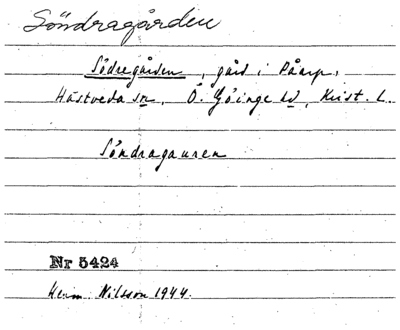 Söndragården
Södregården, gård i Påarp,
Hästveda sn, Ö. Göinge hd, Krist. L.
Söndragauren
Nr 5424
Herm. Nilsson 1944.